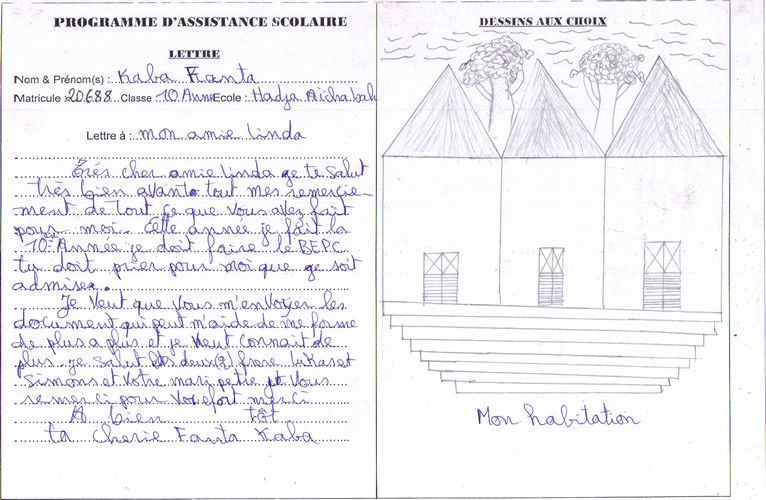 PROGRAMME D'ASSISTANCE SCOLAIRE
LETTRE
Nom & Prénom(s) : Kaba Fanta
Matricule : 20688 Classe : 10 Anné Ecole : Hadja Aïcha bah
Lettre à : mon amie linda
Trés cher amie linda ge te salut
très bien avant tout mes remercie-
ment de tout ce que vous avez fait
pour moi. Cette année je fait la
10e Année je doit faire le BEPC
tu doit prier pour moi que ge soit
admise.
Je veut que vous m'envoyer les
document qui peut m'aide de me forme
de plus a plus et je veut connait de
plus. je salut les deux(2) frere lukas et
Simons et votre mari petre je vous
remerci pour vos efort merci
A bien tôt
ta Cherie Fanta Kaba
DESSINS AUX CHOIX
Mon habitation